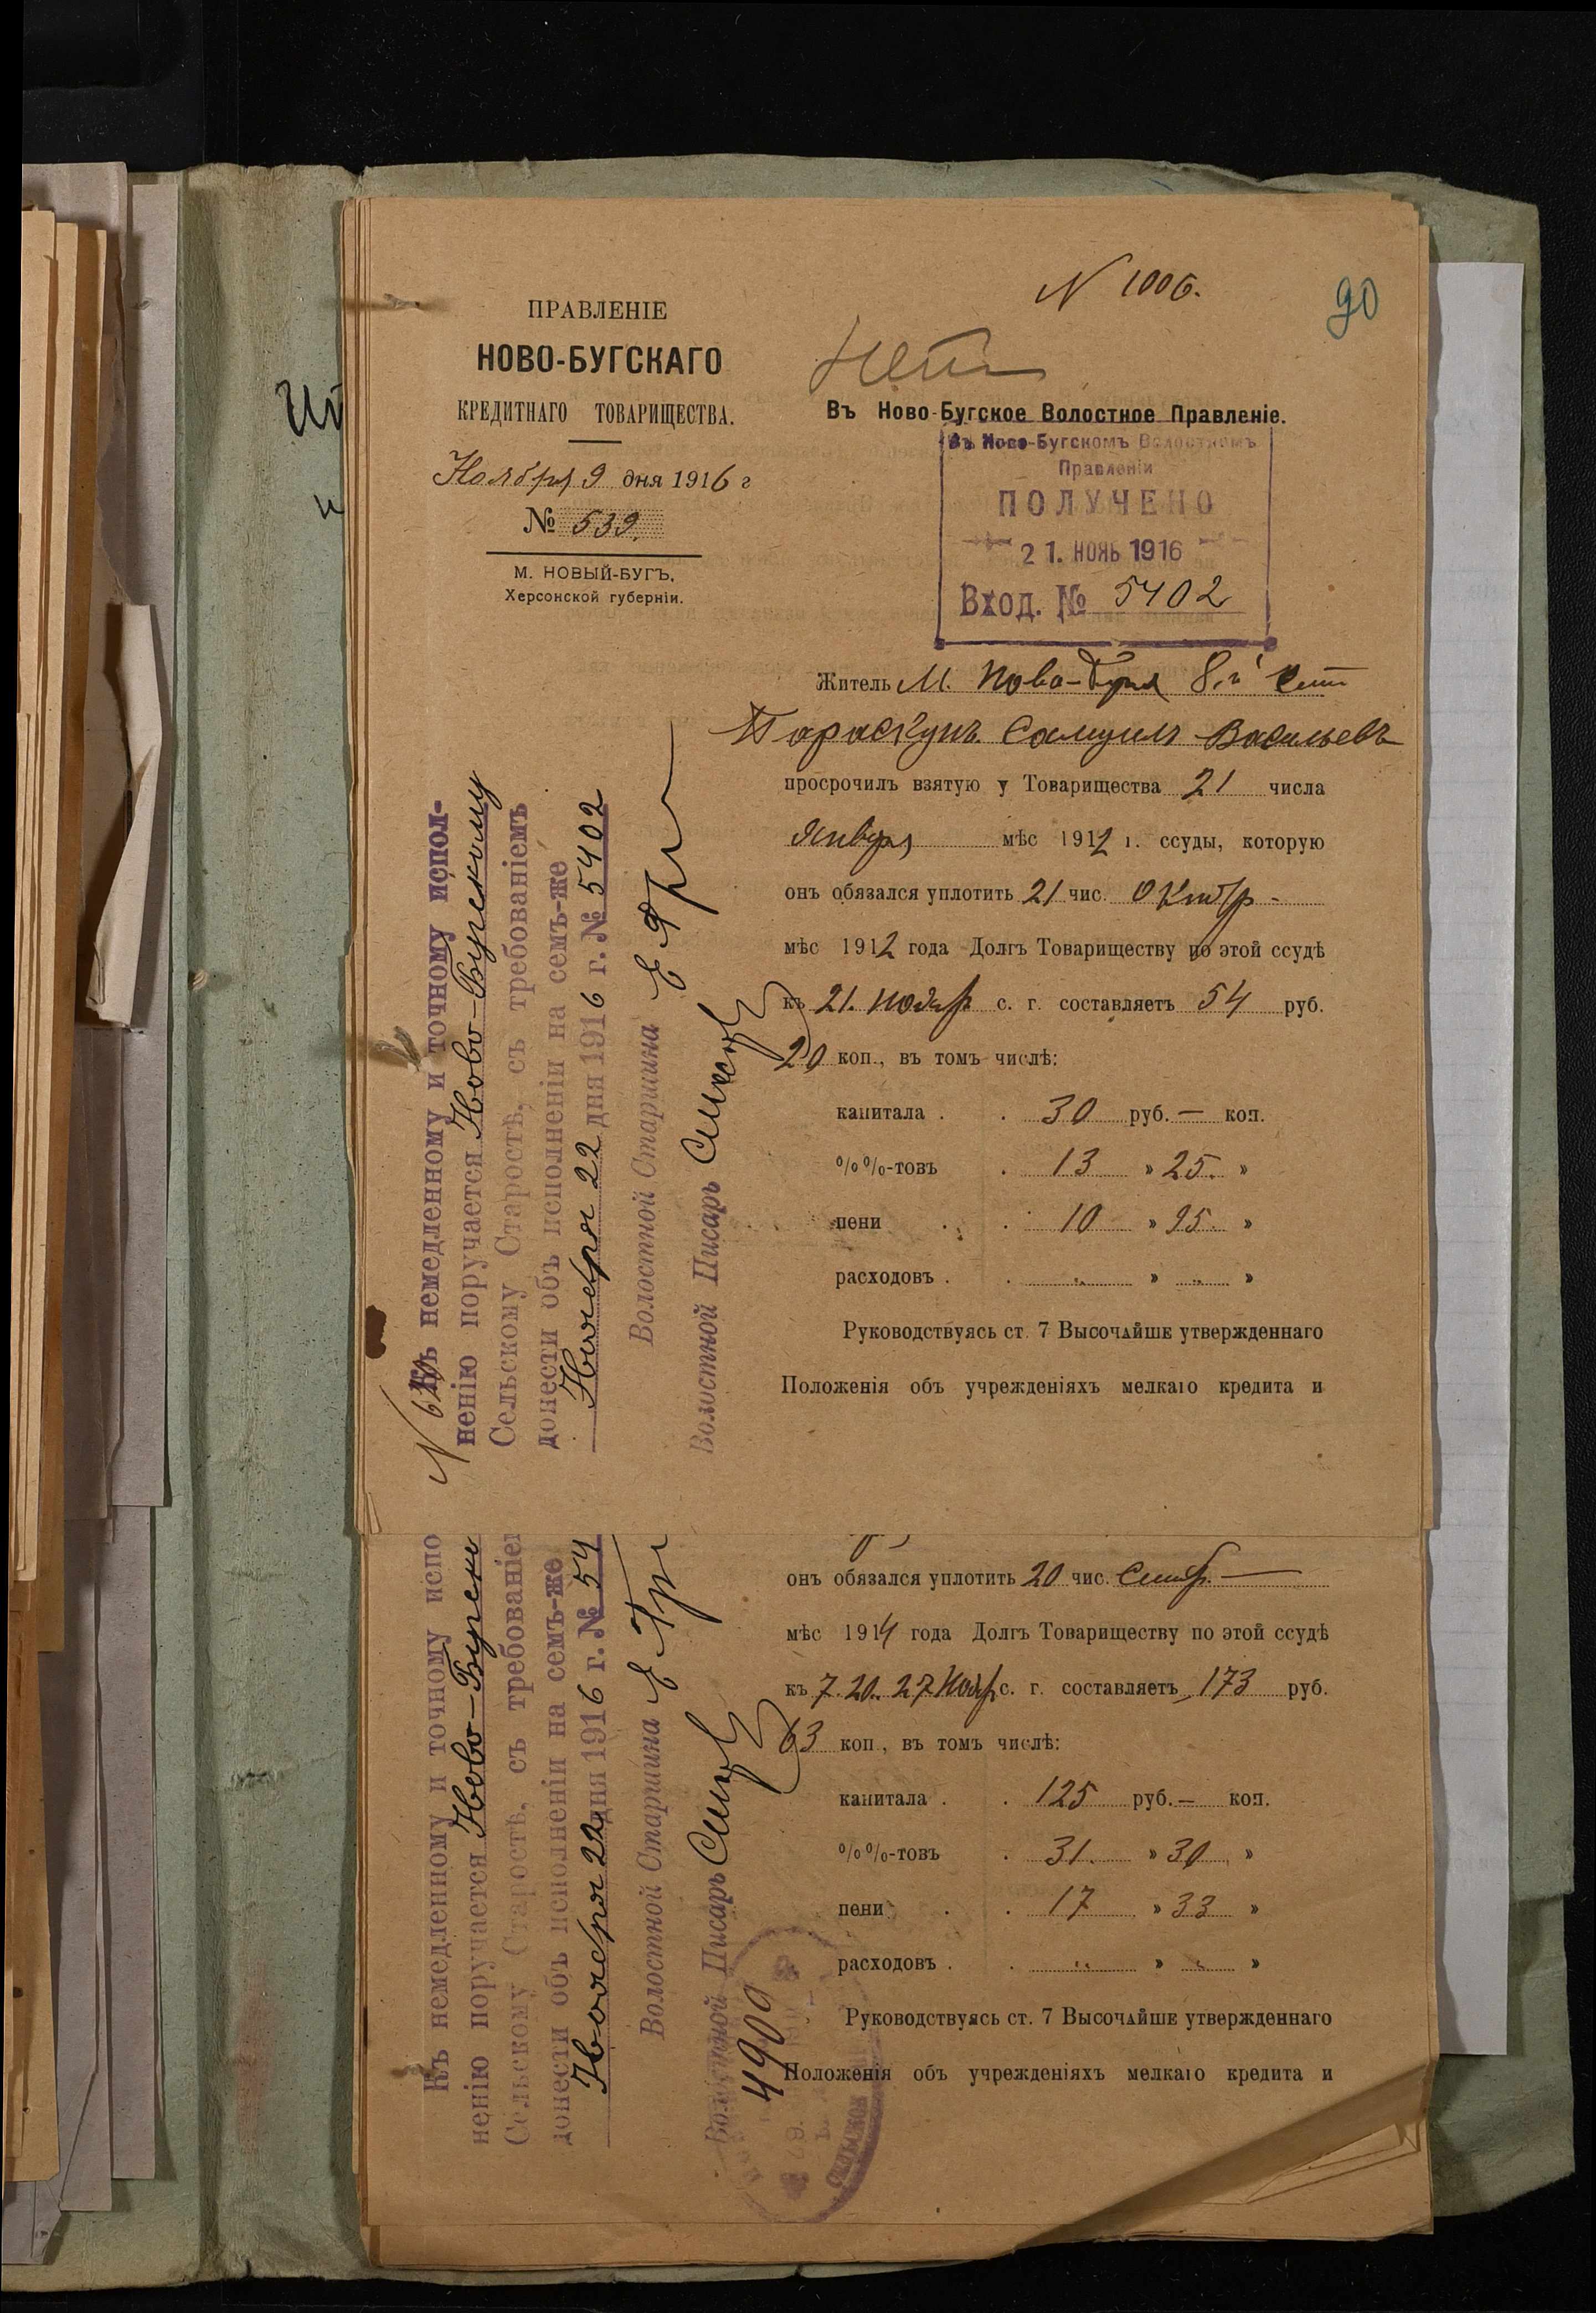 N 1006.
90
Нетъ
ПРАВЛЕНІЕ
НОВО-БУГСКАГО
КРЕДИТНАГО ТОВАРИЩЕСТВА.
Ноября 9 дня 1916 г
№ 539.
М. НОВЫЙ-БУГЪ,
Херсонской губерніи.
Въ Ново-Бугское Волостное Правленіе.
Въ Ново-Бугскомъ Волостномъ
Правленіи
ПОЛУЧЕНО
21. НОЯЬ 1916
Вход. № 5402
Житель М. Ново-Буга 8й
Тараскунъ Самуилъ Васильевъ
просрочилъ взятую у Товарищества 21 числа
Января мѣс 1912 г. ссуды, которую
онъ обязался уплотить 21 чис. Октбр -
мѣс 1912 года Долгъ Товариществу по этой ссудѣ
къ 21. Ноябр с. г. составляетъ 54 руб.
20 коп., въ томъ числѣ:
капитала . . 30 руб. — коп.
%%-товъ . 13 » 25. »
пени . . 10 » 95. »
расходовъ . . „ » „ »
Руководствуясь ст. 7 Высочайше утвержденнаго
Положенія объ учрежденіяхъ мелкаго кредита и
Къ немедленному и точному испол-
ненію поручается Ново-Бугскому
Сельскому Старостѣ, съ требованіемъ
донести объ исполненіи на семъ-же
Ноября 22 дня 1916 г. № 5402
Волостной Старшина
Волостной Писарь
онъ обязался уплотить 20 чис. Сентбр. —
мѣс 1914 года Долгъ Товариществу по этой ссудѣ
къ 7. 20. 27 Ноябр с. г. составляетъ 173 руб.
63 коп., въ томъ числѣ:
капитала . . 125 руб. — коп.
%%-товъ . 31. » 30 »
пени . . 17 » 33 »
расходовъ . . „ » „ »
Руководствуясь ст. 7 Высочайше утвержденнаго
Положенія объ учрежденіяхъ мелкаго кредита и
Къ немедленному и точному испо
ненію поручается Ново-Бугск
Сельскому Старостѣ, съ требованіе
донести объ исполненіи на семъ-же
Ноября 22 дня 1916 г. № 54
Волостной Старшина
Волостной Писарь
4909